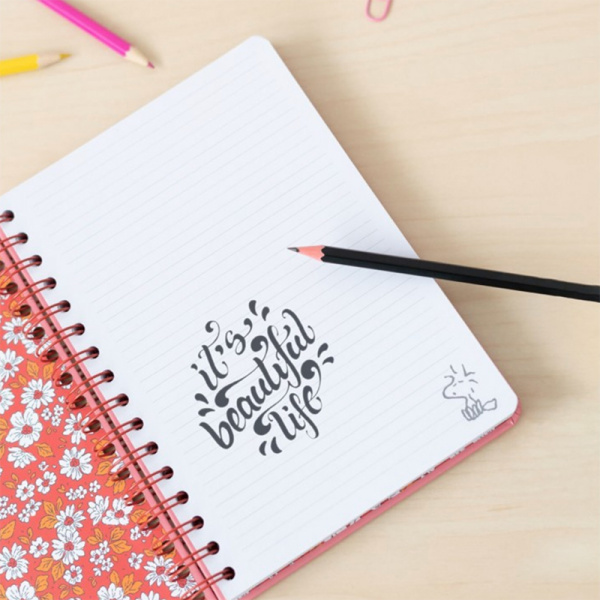 it's
beautiful
life